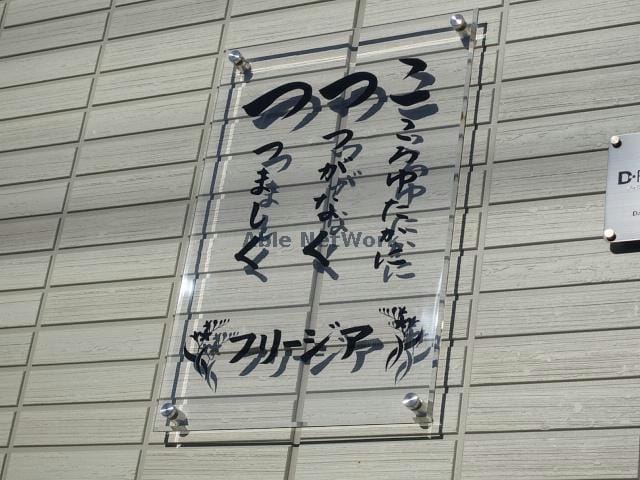 こころゆたかに
つつがなく
つつましく
フリージア
Able NetWork